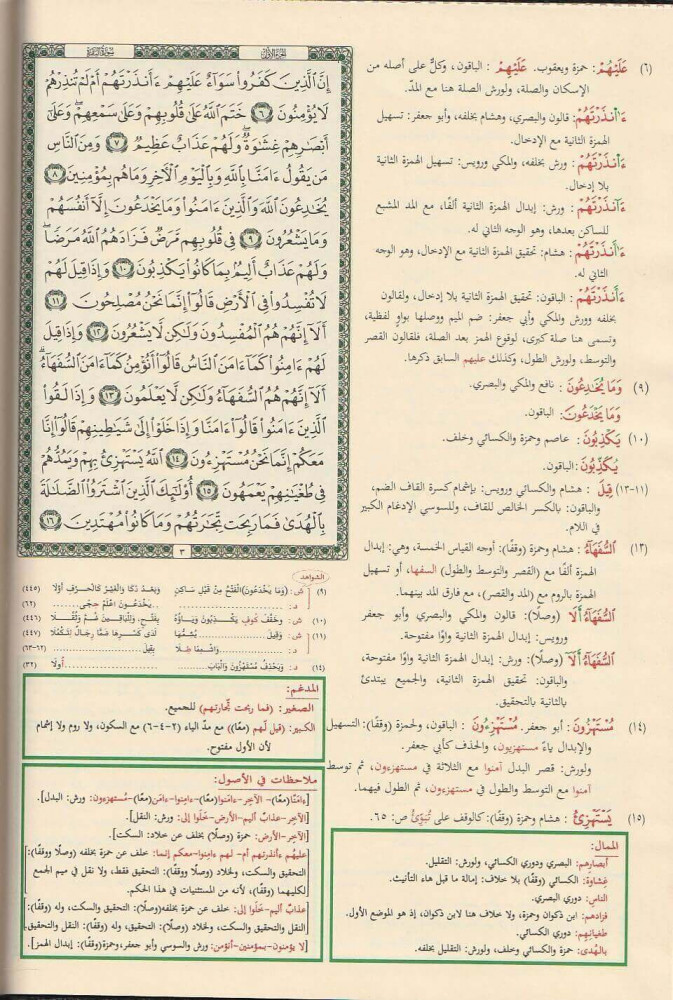 سورة البقرة
الجزء الأول
إِنَّ ٱلَّذِينَ كَفَرُواْ سَوَآءٌ عَلَيْهِمْ ءَأَنذَرْتَهُمْ أَمْ لَمْ تُنذِرْهُمْ
لَا يُؤْمِنُونَ ٦ خَتَمَ ٱللَّهُ عَلَىٰ قُلُوبِهِمْ وَعَلَىٰ سَمْعِهِمْ ۖ وَعَلَىٰٓ
أَبْصَٰرِهِمْ غِشَٰوَةٌ ۖ وَلَهُمْ عَذَابٌ عَظِيمٌ ٧ وَمِنَ ٱلنَّاسِ
مَن يَقُولُ ءَامَنَّا بِٱللَّهِ وَبِٱلْيَوْمِ ٱلْءَاخِرِ وَمَا هُم بِمُؤْمِنِينَ ٨
يُخَٰدِعُونَ ٱللَّهَ وَٱلَّذِينَ ءَامَنُواْ وَمَا يَخْدَعُونَ إِلَّآ أَنفُسَهُمْ
وَمَا يَشْعُرُونَ ٩ فِى قُلُوبِهِم مَّرَضٌ فَزَادَهُمُ ٱللَّهُ مَرَضًا ۖ
وَلَهُمْ عَذَابٌ أَلِيمٌۢ بِمَا كَانُواْ يَكْذِبُونَ ١٠ وَإِذَا قِيلَ لَهُمْ
لَا تُفْسِدُواْ فِى ٱلْأَرْضِ قَالُوٓاْ إِنَّمَا نَحْنُ مُصْلِحُونَ ١١
أَلَآ إِنَّهُمْ هُمُ ٱلْمُفْسِدُونَ وَلَٰكِن لَّا يَشْعُرُونَ ١٢ وَإِذَا قِيلَ
لَهُمْ ءَامِنُواْ كَمَآ ءَامَنَ ٱلنَّاسُ قَالُوٓاْ أَنُؤْمِنُ كَمَآ ءَامَنَ ٱلسُّفَهَآءُ ۗ
أَلَآ إِنَّهُمْ هُمُ ٱلسُّفَهَآءُ وَلَٰكِن لَّا يَعْلَمُونَ ١٣ وَإِذَا لَقُواْ
ٱلَّذِينَ ءَامَنُواْ قَالُوٓاْ ءَامَنَّا وَإِذَا خَلَوْاْ إِلَىٰ شَيَٰطِينِهِمْ قَالُوٓاْ إِنَّا
مَعَكُمْ إِنَّمَا نَحْنُ مُسْتَهْزِءُونَ ١٤ ٱللَّهُ يَسْتَهْزِئُ بِهِمْ وَيَمُدُّهُمْ
فِى طُغْيَٰنِهِمْ يَعْمَهُونَ ١٥ أُوْلَٰٓئِكَ ٱلَّذِينَ ٱشْتَرَوُاْ ٱلضَّلَٰلَةَ
بِٱلْهُدَىٰ فَمَا رَبِحَت تِّجَٰرَتُهُمْ وَمَا كَانُواْ مُهْتَدِينَ ١٦
٣
(٦) عَلَيْهُمْ: حمزة ويعقوب. عَلَيْهِمْ: الباقون، وكلٌّ على أصله من
الإسكان والصلة، ولورش الصلة هنا مع المدّ.
ءَاأنذَرْتَهُمْ: قالون والبصري، وهشام بخلفه، وأبو جعفر: تسهيل
الهمزة الثانية مع الإدخال.
ءَاْنذَرْتَهُمْ: ورش بخلفه، والمكي ورويس: تسهيل الهمزة الثانية
بلا إدخال.
ءَآنذَرْتَهُمْ: ورش: إبدال الهمزة الثانية ألفًا، مع المد المشبع
للساكن بعدها، وهو الوجه الثاني له.
ءَاأَنذَرْتَهُمْ: هشام: تحقيق الهمزة الثانية مع الإدخال، وهو الوجه
الثاني له.
ءَأَنذَرْتَهُمْ: الباقون: تحقيق الهمزة الثانية بلا إدخال، ولقالون
بخلفه وورش والمكي وأبي جعفر: ضم الميم ووصلها بواوٍ لفظية،
وتسمى هنا صلة كبرى، لوقوع الهمز بعد الصلة، فلقالون القصر
والتوسط، ولورش الطول، وكذلك عليهم السابق ذكرها.
(٩) وَمَا يُخَٰدِعُونَ: نافع والمكي والبصري.
وَمَا يَخْدَعُونَ: الباقون.
(١٠) يَكْذِبُونَ: عاصم وحمزة والكسائي وخلف.
يُكَذِّبُونَ: الباقون.
(١١-١٣) قِيلَ: هشام والكسائي ورويس: بإشمام كسرة القاف الضم،
والباقون: بالكسر الخالص للقاف، وللسوسي الإدغام الكبير
في اللام.
(١٣) ٱلسُّفَهَآءُ: هشام وحمزة (وقفًا): أوجه القياس الخمسة، وهي: إبدال
الهمزة ألفًا مع (القصر والتوسط والطول) السفها، أو تسهيل
الهمزة بالروم مع (المد والقصر)، مع فارق المد بينهما.
ٱلسُّفَهَآءُ أَلَا (وصلًا): قالون والمكي والبصري وأبو جعفر
ورويس: إبدال الهمزة الثانية واوًا مفتوحة.
ٱلسُّفَهَآءُ أَلَآ (وصلًا): ورش: إبدال الهمزة الثانية واوًا مفتوحة،
والباقون: تحقيق الهمزة الثانية، والجميع يبتدئ
بالثانية بالتحقيق.
(١٤) مُسْتَهْزُونَ: أبو جعفر. مُسْتَهْزِءُونَ: الباقون، ولحمزة (وقفًا): التسهيل
والإبدال ياءً مستهزيون، والحذف كأبي جعفر.
ولورش: قصر البدل آمنوا مع الثلاثة في مستهزءون، ثم توسط
آمنوا مع التوسط والطول في مستهزءون، ثم الطول فيهما.
(١٥) يَسْتَهْزِئُ: هشام وحمزة (وقفًا): كالوقف على تُبَوِّئُ ص: ٦٥.
الشواهد
(٩) ش: (وَمَا يَخْدَعُونَ) الْفَتْحُ مِنْ قَبْلِ سَاكِنٍ وَبَعْدُ ذَكَا وَالْغَيْرُ كَالْحَرْفِ أَوَّلَا (٤٤٥)
د: ... يَخْدَعُونَ اعْلَمْ حِجًى ... (٦٢)
(١٠) ش: وَخَفَّفَ كُوفٍ يَكْذِبُونَ وَيَاؤُهُ بِفَتْحٍ وَلِلْبَاقِينَ ضُمَّ وَثُقِّلَا (٤٤٦)
(١١) ش: وَقِيلَ ... يُشِمُّهَا لَدَى كَسْرِهَا ضَمًّا رِجَالٌ لِتَكْمُلَا (٤٤٧)
د: ... وَاشْمِمًا طِلَا بِقِيلَ ... (٦٢-٦٣)
(١٤) د: وَيَحْذِفُ مُسْتَهْزُونَ وَالْبَابَ ... أُولَا (٣٢)
المدغم:
الصغير: (فما ربحت تجارتهم) للجميع.
الكبير: (قيل لَهم (معًا)) مع مدّ الياء (٢-٤-٦) مع السكون، ولا روم ولا إشمام
لأن الأول مفتوح.
ملاحظات في الأصول:
[ءامَنَّا(معًا)- الآخِر-ءامَنوا(معًا)-ءامِنوا-ءامَن(معًا)-مُستهزءون: ورش: البدل].
[الآخِر-عذابٌ أليم-الأرض-خَلَوا إلى: ورش: النقل].
[الآخِر-الأرض: حمزة (وصلًا) بخلف عن خلاد: السكت].
[عليهُم ءأنذرتهم أم- لهم ءامِنوا-معكم إنما: خلف عن حمزة بخلفه (وصلًا ووقفًا):
التحقيق والسكت، ولخلاد (وصلًا ووقفًا): التحقيق فقط، ولا نقل في ميم الجمع
لكليهما (وقفًا)، لأنه من المستثنيات في هذا الحكم.
[عذابٌ أليم-خَلَوا إلى: خلف عن حمزة بخلفه(وصلًا): التحقيق والسكت، وله (وقفًا):
النقل والتحقيق والسكت، ولخلاد (وصلًا): التحقيق، وله (وقفًا): النقل والتحقيق]
[لا يؤمنون-بمؤمنين-أنؤمن: ورش والسوسي وأبو جعفر،وحمزة(وقفًا): إبدال الهمز].
الممال:
أبصارهم: البصري ودوري الكسائي، ولورش: التقليل.
غِشاوة: الكسائي (وقفًا) بلا خلاف: إمالة ما قبل هاء التأنيث.
الناس: دوري البصري.
فزادهم: ابن ذكوان وحمزة، ولا خلاف هنا لابن ذكوان، إذ هو الموضع الأول.
طغيانهم: دوري الكسائي.
بالهُدى: حمزة والكسائي وخلف، ولورش: التقليل بخلفه.